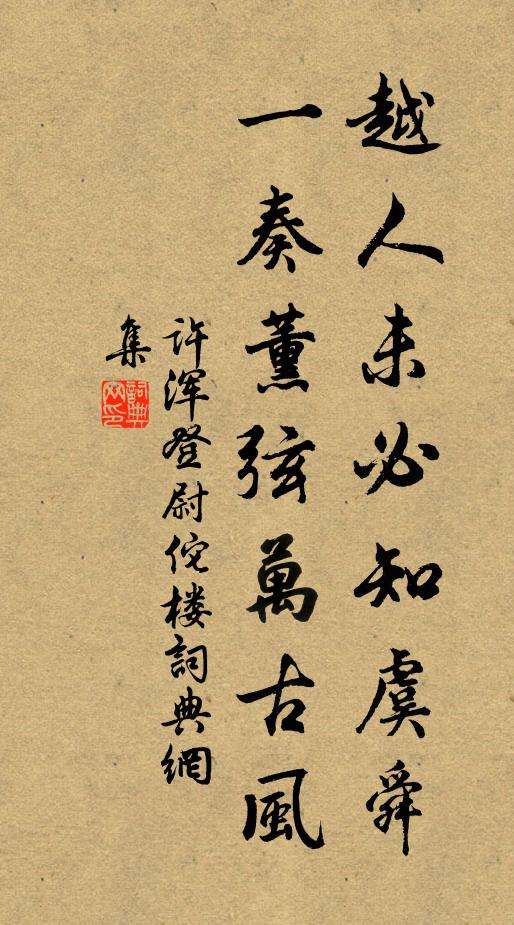 越人未必知虞舜
一奏薰弦萬古風
许浑登尉佗楼詞典網
集
詞典
网印